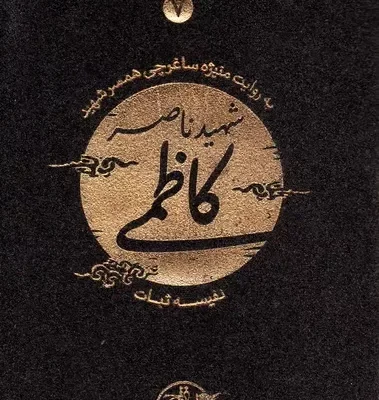 ۷
به روایت منیژه ساغرچی همسر شهید
شهید ناصر
کاظمی
نفیسه ثبات